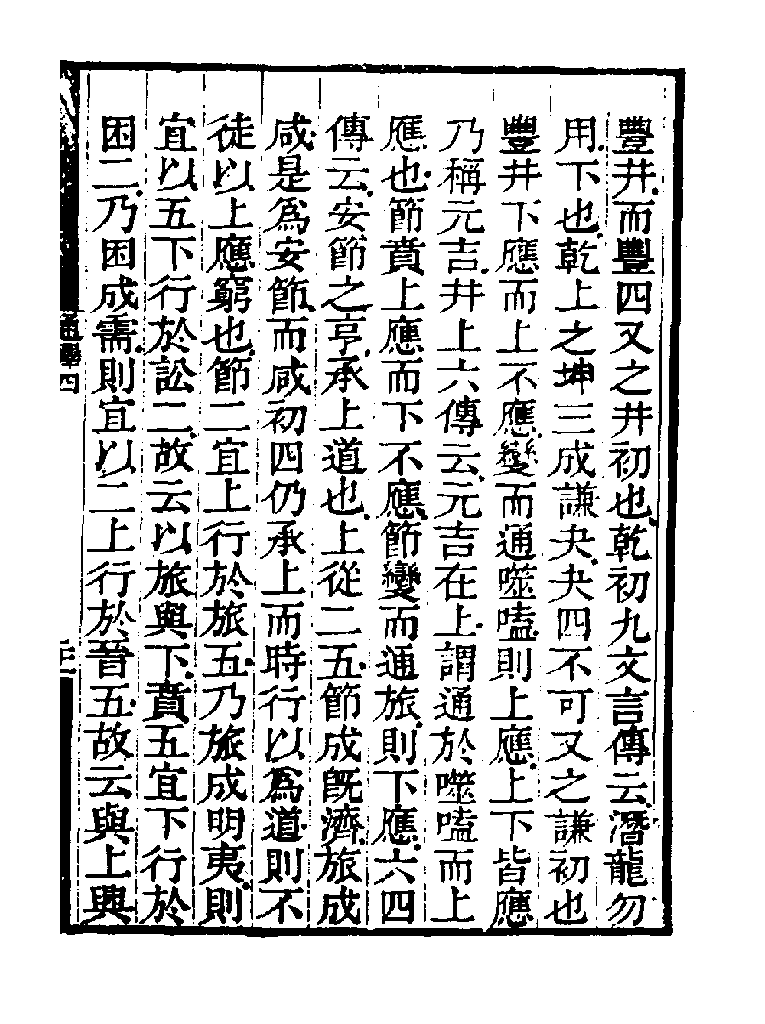 豐井而豐四又之井初也乾初九文言傳云潛龍勿
用下也乾上之坤三成謙夬夬四不可又之謙初也
豐井下應而上不應變而通噬嗑則上應上下皆應
乃稱元吉井上六傳云元吉在上謂通於噬嗑而上
應也節賁上應而下不應節變而通旅則下應六四
傳云安節之亨承上道也上從二五節成旣濟旅成
咸是爲安節而咸初四仍承上而時行以爲道則不
徒以上應窮也節二宜上行於旅五乃旅成明夷則
宜以五下行於訟二故云以旅與下賁五宜下行於
困二乃困成需則宜以二上行於晉五故云與上興
通釋四